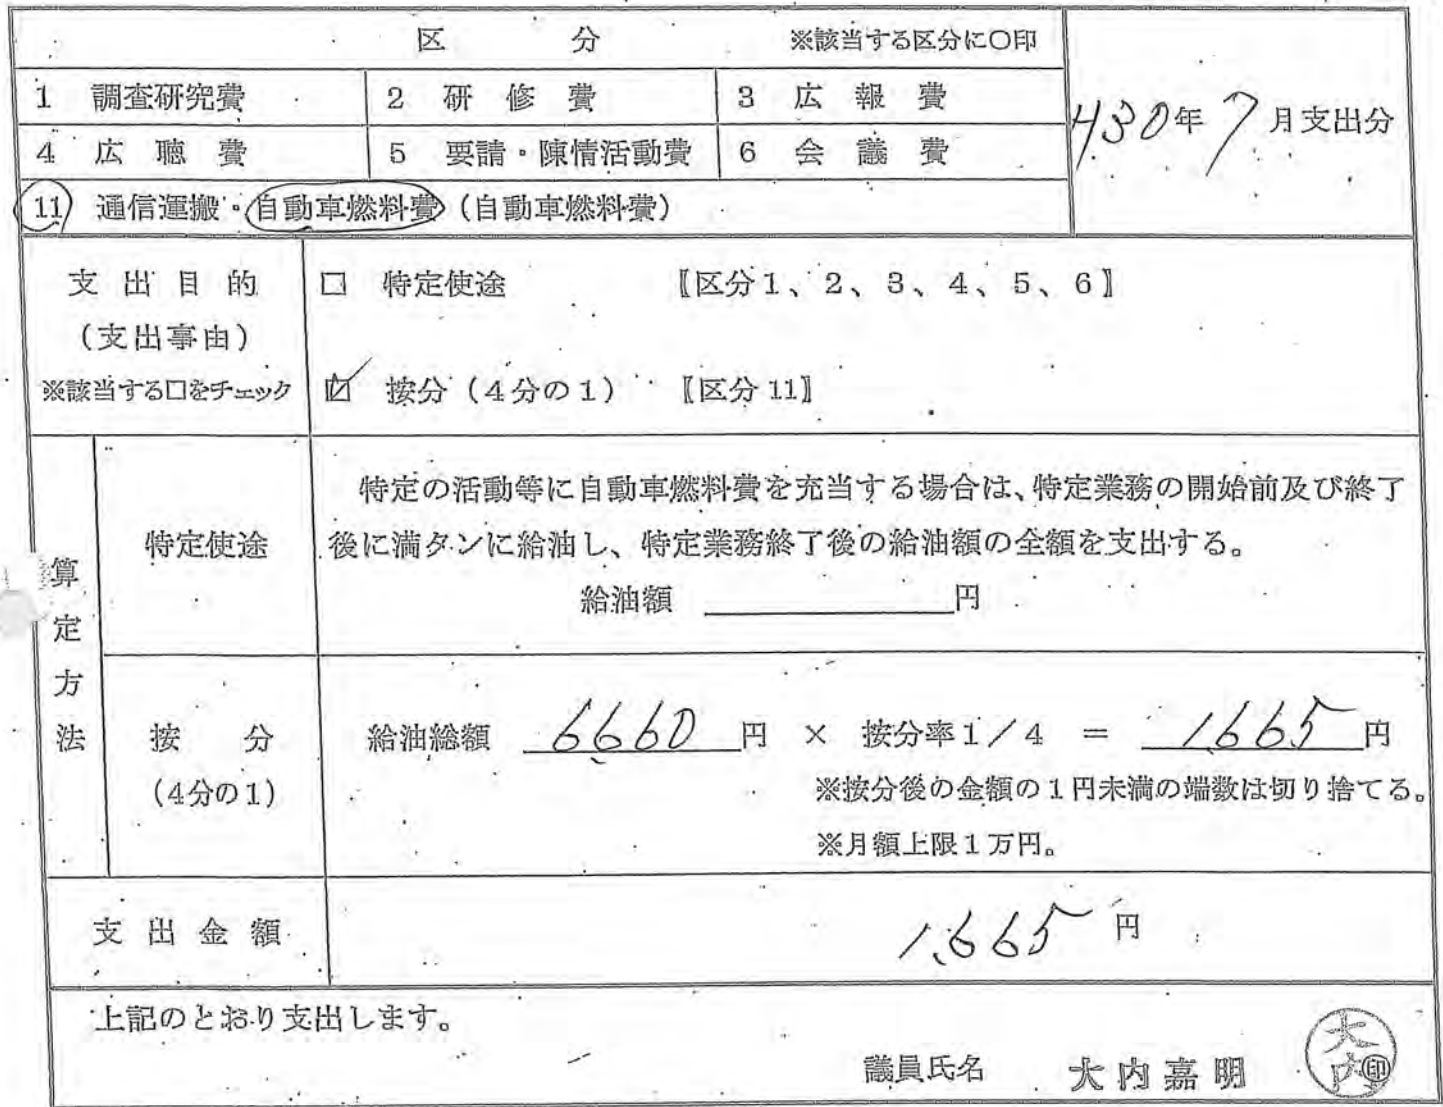 区 分 ※該当する区分に○印
1 調査研究費 2 研 修 費 3 広 報 費
4 広 聴 費 5 要請・陳情活動費 6 会 議 費
11 通信運搬・自動車燃料費(自動車燃料費)
H30年 7 月支出分
支 出 目 的
(支出事由)
※該当する口をチェック
□ 特定使途 〖区分1、2、3、4、5、6〗
☑ 按分(4分の1) 〖区分11〗
算定方法
特定使途
特定の活動等に自動車燃料費を充当する場合は、特定業務の開始前及び終了
後に満タンに給油し、特定業務終了後の給油額の全額を支出する。
給油額 円
按 分
(4分の1)
給油総額 6,660 円 × 按分率1/4 = 1,665 円
※按分後の金額の1円未満の端数は切り捨てる。
※月額上限1万円。
支 出 金 額 1,665 円
上記のとおり支出します。
議員氏名 大内嘉明 ㊞
大内